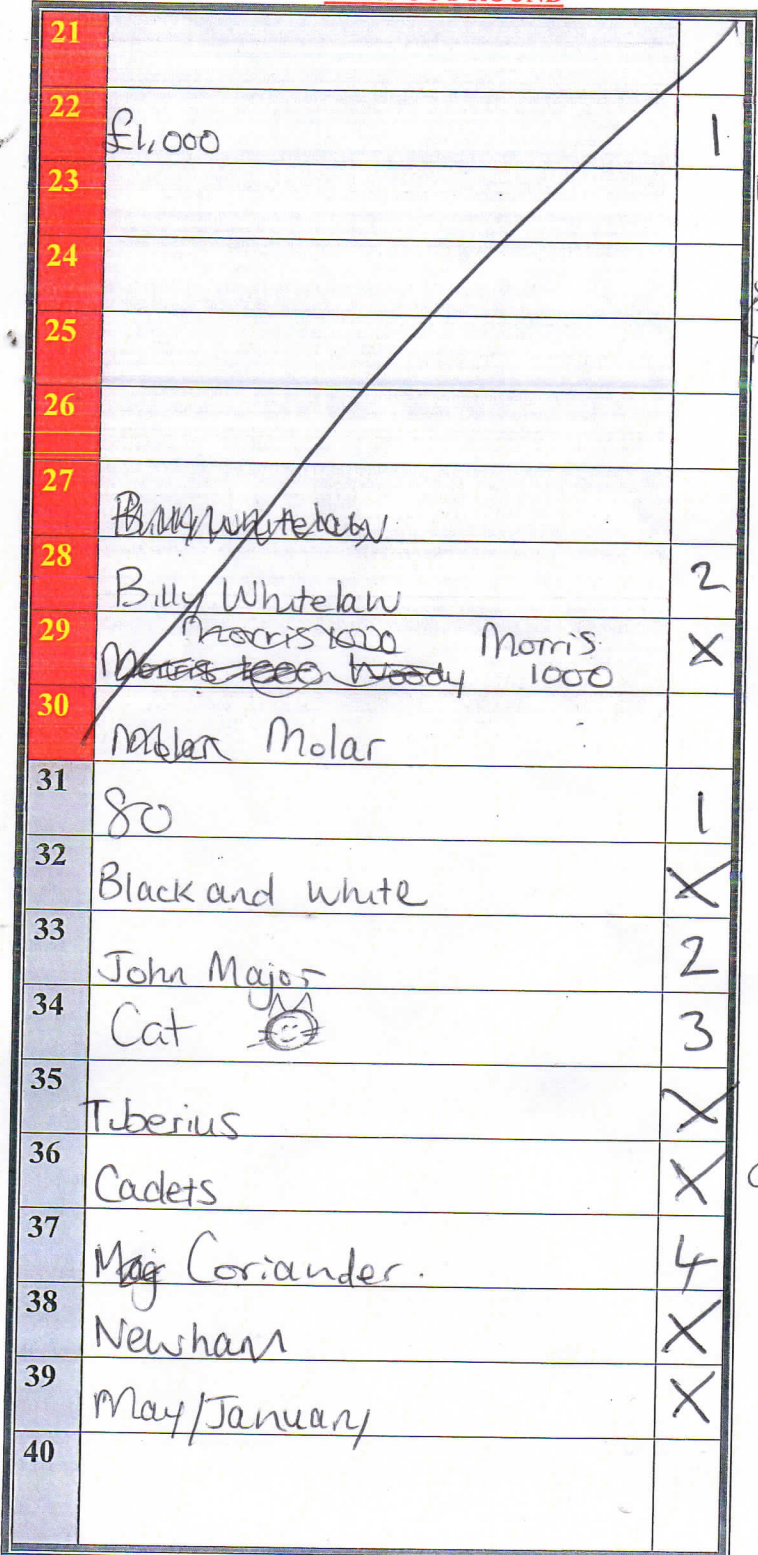 ROUND
21
22 £1,000 1
23
24
25
26
27 Billy Whitelaw
28 Billy Whitelaw 2
29 Morris 1000 Morris X
Morris 1000 Woody 1000
30 Molar
31 80 1
32 Black and white X
33 John Major 2
34 Cat 3
35 Tiberius X
36 Cadets X
37 Coriander. 4
38 Newham X
39 May/January X
40